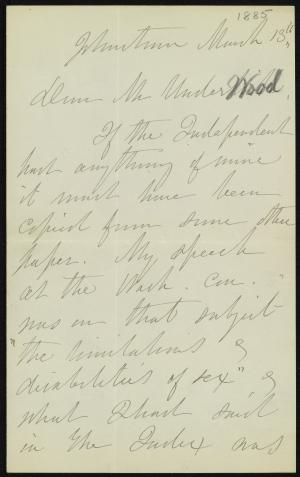 1885
Johnstown March 13th
Dear Mr Underwood,
If the Independent
had anything of mine
it must have been
copied from some other
paper. My speech
at the Wash. con.
was on that subject
"the limitations &
disabilities of sex" &
what I had said
in the Index was